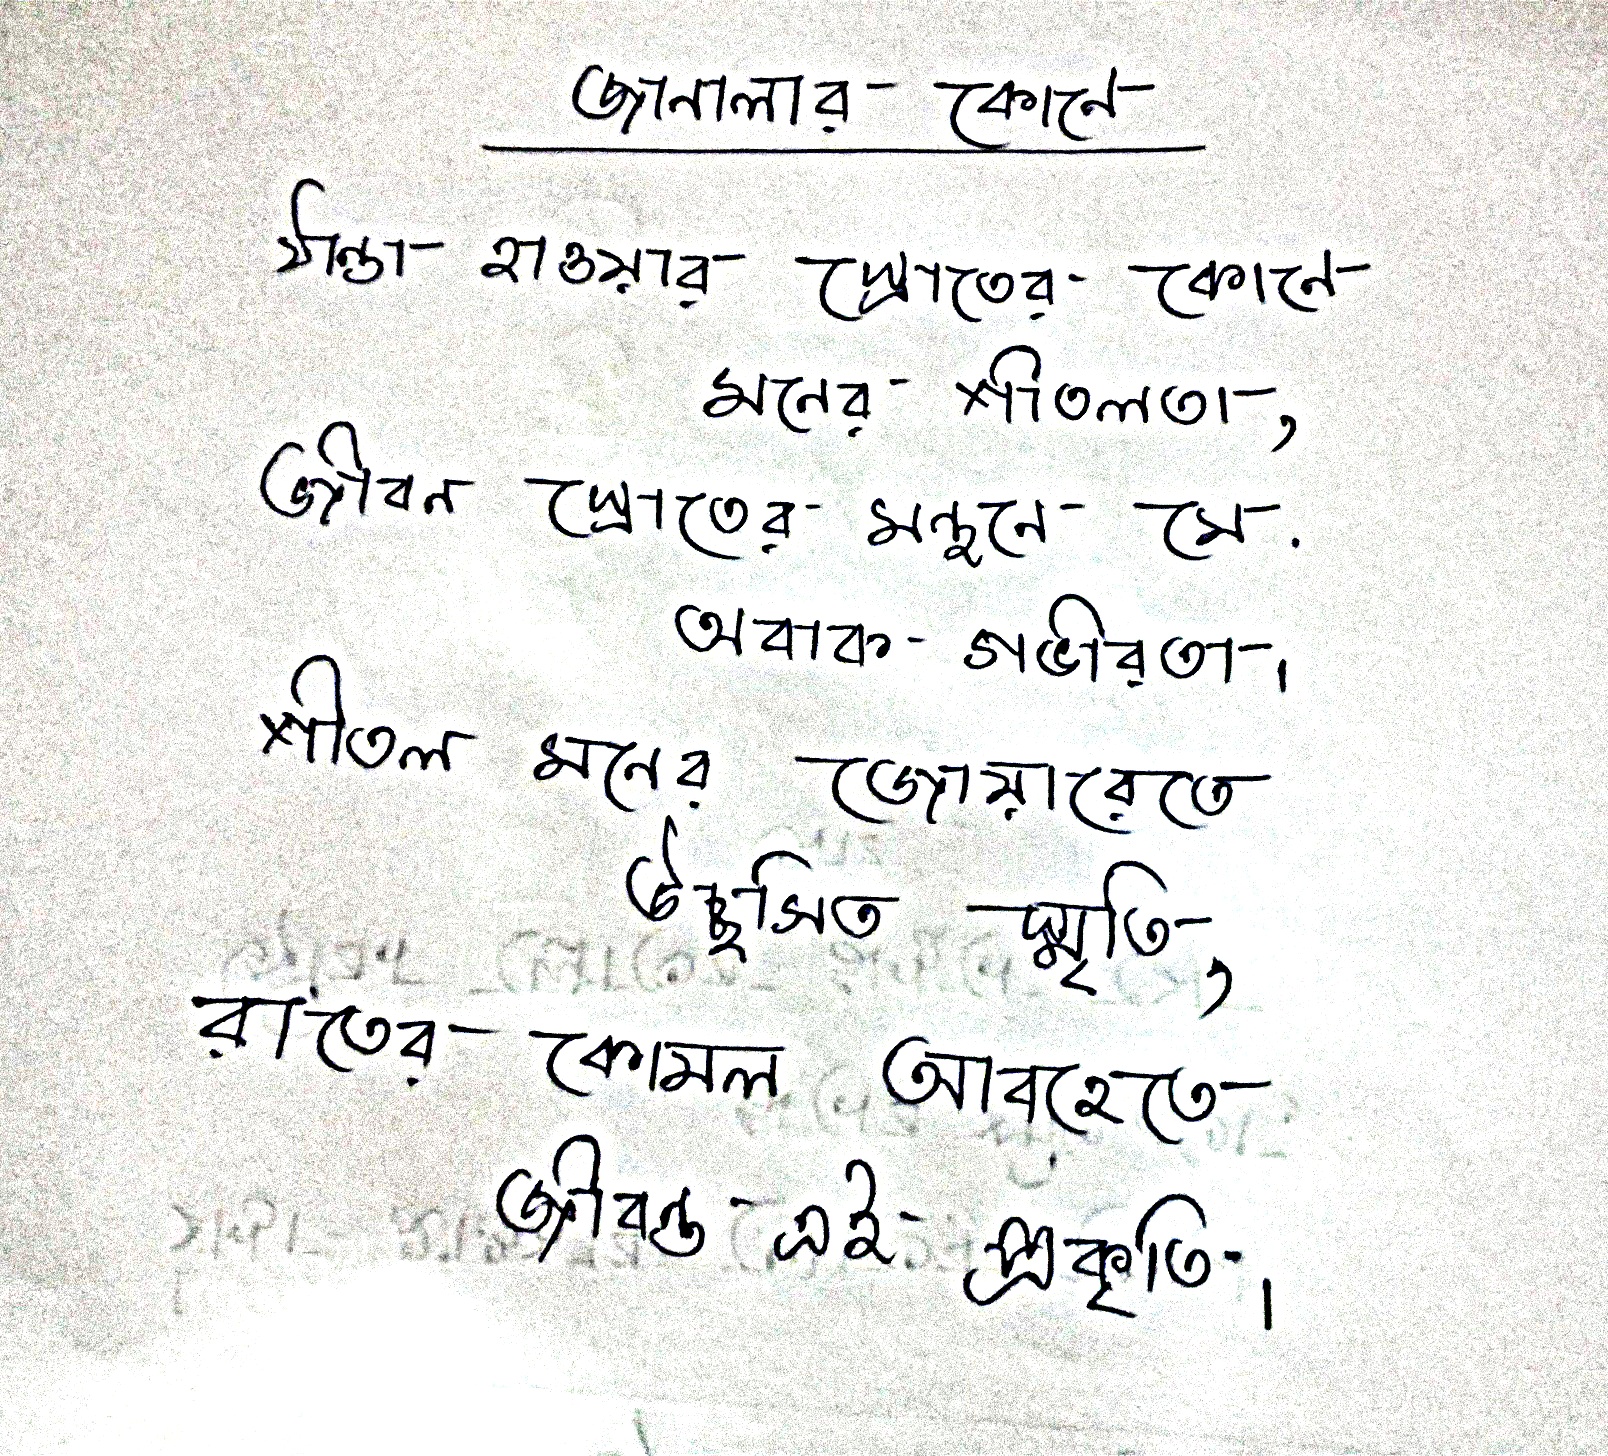 জানালার কোনে
ঠান্ডা হাওয়ার স্রোতের কোনে
মনের শীতলতা,
জীবন স্রোতের মন্থনে সে.
অবাক গভীরতা।
শীতল মনের জোয়ারেতে
উচ্ছসিত স্মৃতি,
রাতের কোমল আবহেতে
জীবন্ত এই প্রকৃতি।